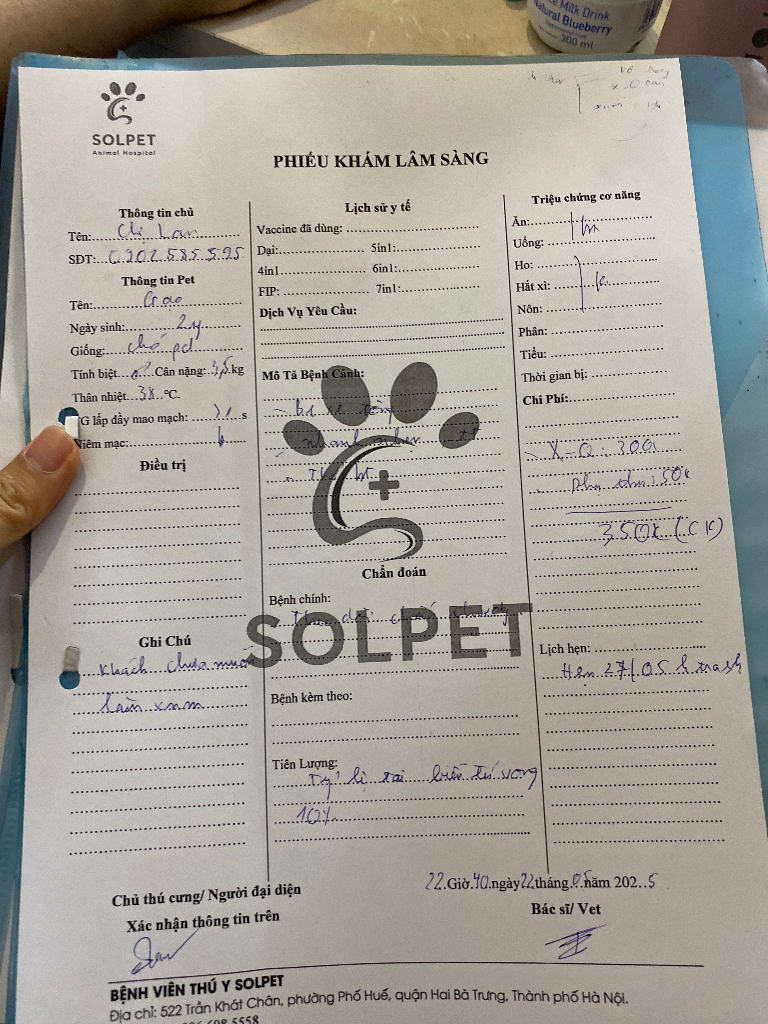 Milk Drink
Natural Blueberry
300 ml
SOLPET
Animal Hospital
PHIẾU KHÁM LÂM SÀNG
Thông tin chủ
Tên: Chị Lan
SĐT: 0902.585.595
Thông tin Pet
Tên:
Ngày sinh: 2y
Giống: chó pd
Tính biệt Cân nặng: 3,5 kg
Thân nhiệt 38 °C.
G lấp đầy mao mạch: s
Niêm mạc:
Điều trị
Ghi Chú
Khách chưa muốn
làm xnm
Lịch sử y tế
Vaccine đã dùng:
Dại: 5in1:
4in1 6in1:
FIP: 7in1:
Dịch Vụ Yêu Cầu:
Mô Tả Bệnh Cảnh:
- bị xe tông
- nhanh nhẹn
SOLPET
Chẩn đoán
Bệnh chính:
Theo dõi
Bệnh kèm theo:
Tiên Lượng:
Tỷ lệ tai biến tử vong
10%
Triệu chứng cơ năng
Ăn:
Uống:
Ho:
Hắt xì:
Nôn:
Phân:
Tiểu:
Thời gian bị:
Chi Phí:
- X-Q: 300k
- phụ thu: 50k
350k (CK)
Lịch hẹn:
Hẹn 27/05
22 Giờ 40 ngày 22 tháng 05 năm 2025
Chủ thú cưng/ Người đại diện
Xác nhận thông tin trên
Bác sĩ/ Vet
BỆNH VIỆN THÚ Y SOLPET
Địa chỉ: 522 Trần Khát Chân, phường Phố Huế, quận Hai Bà Trưng, Thành phố Hà Nội.
698 5558